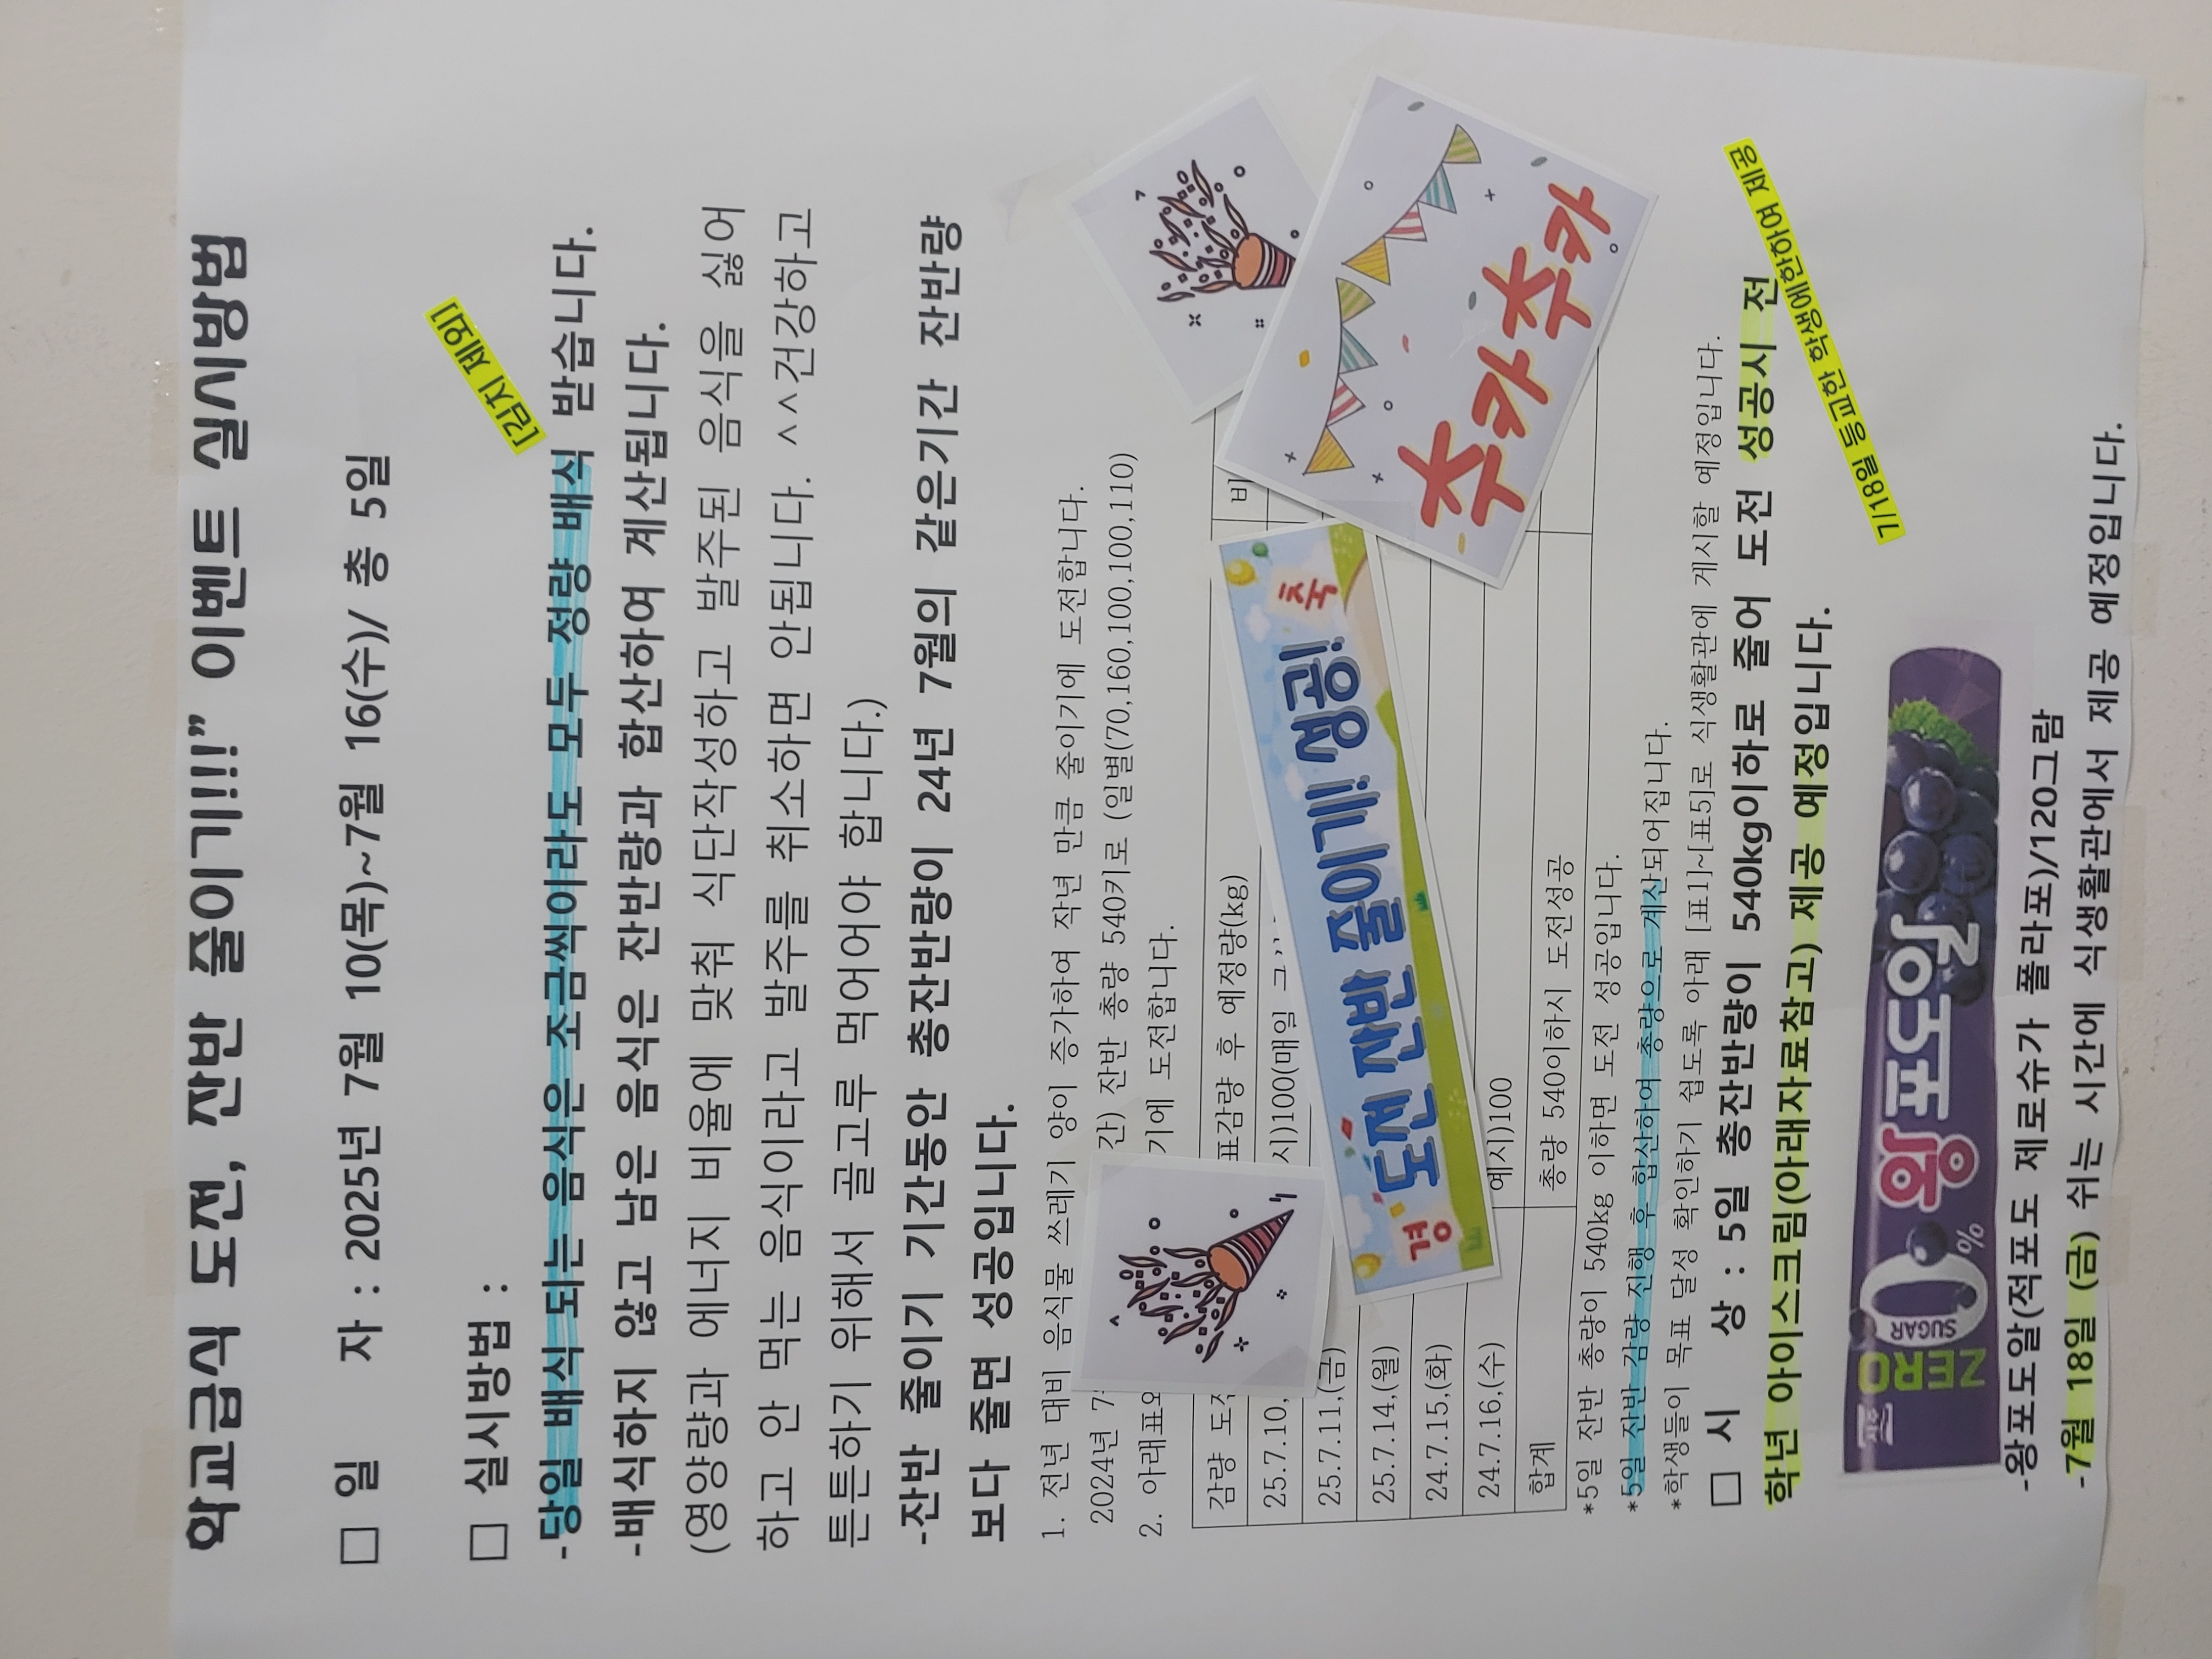 학교급식 도전, 잔반 줄이기!!!” 이벤트 실시방법
□ 일 자 : 2025년 7월 10(목)~7월 16(수)/ 총 5일
□ 실시방법 :
[김치 제외]
-당일 배식 되는 음식은 조금씩이라도 모두 정량 배식 받습니다.
-배식하지 않고 남은 음식은 잔반량과 합산하여 계산됩니다.
(영양량과 에너지 비율에 맞춰 식단작성하고 발주된 음식을 싫어
하고 안 먹는 음식이라고 발주를 취소하면 안됩니다. ^^건강하고
튼튼하기 위해서 골고루 먹어어야 합니다.)
-잔반 줄이기 기간동안 총잔반량이 24년 7월의 같은기간 잔반량
보다 줄면 성공입니다.
1. 전년 대비 음식물 쓰레기 양이 증가하여 작년 만큼 줄이기에 도전합니다.
2024년 7 간) 잔반 총량 540키로 (일별(70,160,100,100,110)
2. 아래표와 기에 도전합니다.
감량 도 표감량 후 예정량(kg) 비
25.7.10, 시)100(매일
25.7.11,(금)
25.7.14,(월)
24.7.15,(화)
24.7.16,(수) 예시)100
합계 총량 540이하시 도전성공
경 도전 잔반 줄이기! 성공! 축
추카추카
*5일 잔반 총량이 540kg 이하면 도전 성공입니다.
*5일 잔반 감량 진행 후 합산하여 총량으로 계산되어집니다.
*학생들이 목표 달성 확인하기 쉽도록 아래 [표1]~[표5]로 식생활관에 게시할 예정입니다.
□ 시 상 : 5일 총잔반량이 540kg이하로 줄어 도전 성공시 전
학년 아이스크림(아래자료참고) 제공 예정입니다.
기18일 등교한 학생에한하여 제공
ZERO SUGAR 0% 왕포도알
-왕포도알(적포도 제로슈가 폴라포)/120그람
-7월 18일 (금) 쉬는 시간에 식생활관에서 제공 예정입니다.